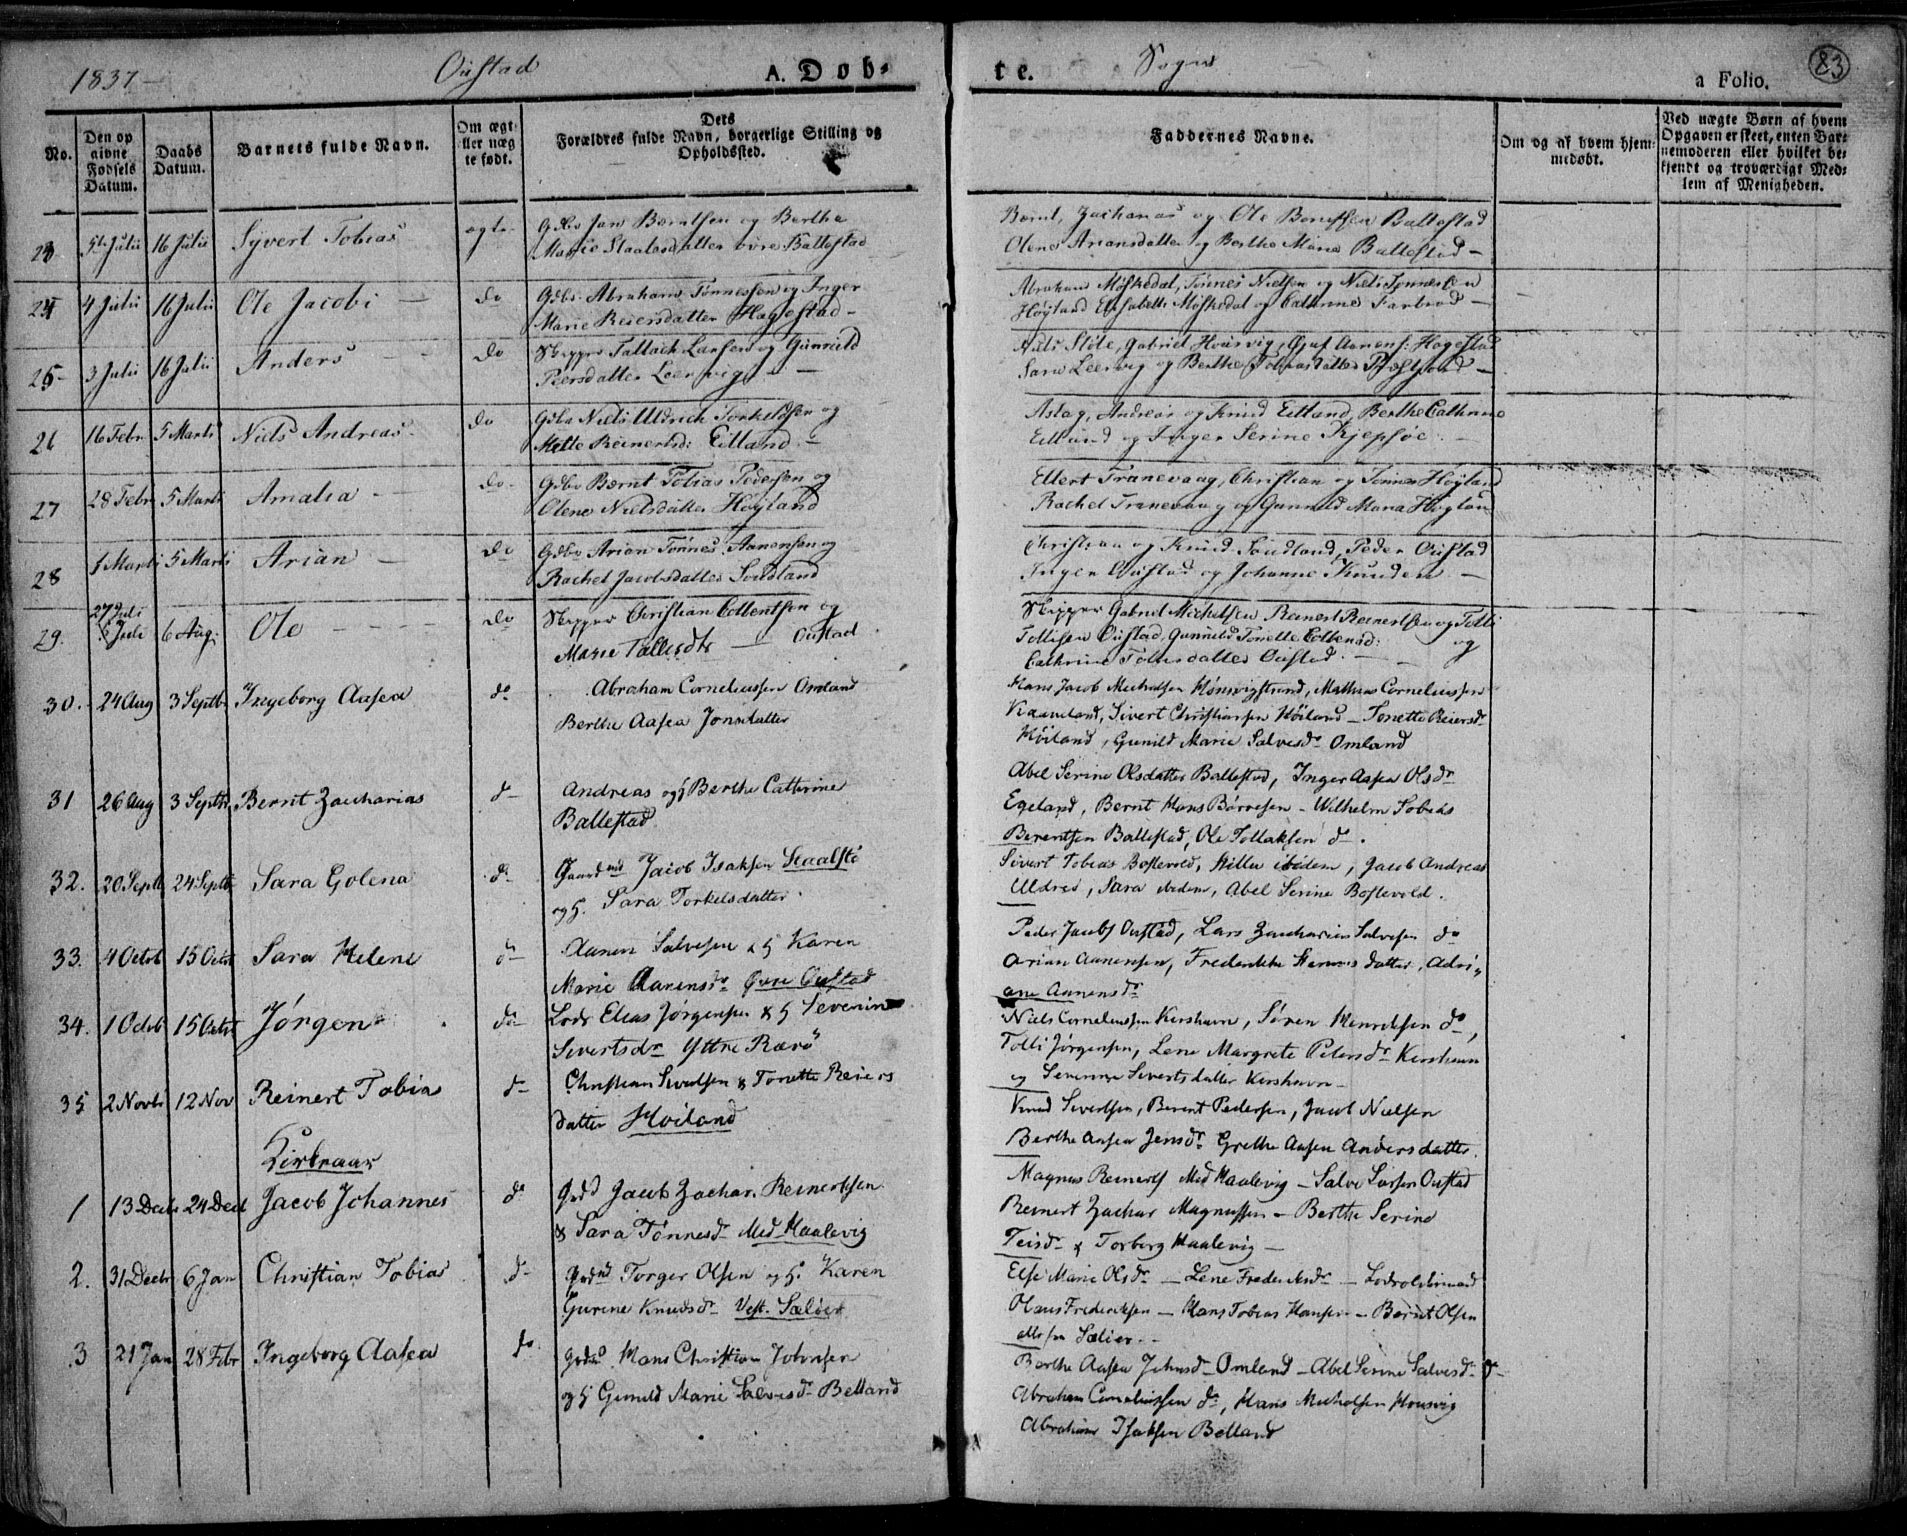 1837 —
Oustad
A. Døb-
te.
Sogn
a Folio.
83
No.
Den op
givne
Fødsels
Datum.
Daabs
Datum.
Barnets fulde Navn.
Om ægt
eller uæg
te født.
Dets
Forældres fulde Navn, borgerlige Stilling og
Opholdssted.
Faddernes Navne.
Om og af hvem hjem-
medøbt.
Ved uægte Børn af hvem
Opgaven er skeet, enten Bar-
nemoderen eller hvilket be-
kjendt og troværdigt Med-
lem af Menigheden.
23 5te Julii 16 Julii Syvert Tobias ægte Gdbr Jan Berntsen og Berthe
Marie Staalesdatter øvre Ballestad
Bernt, Zacharias og Ole Berntsen Ballestad
Olene Ariansdatter og Berthe Marie Ballestad —
24 4 Julii 16 Julii Ole Jacobi — do Gdbr Abraham Tønnessen og Inger
Marie Reiersdatter Høgestad —
Abraham Møskedal, Tønnes Nielsen og Niels Tønnessen
Høyland Elisabeth Møskedal og Cathrine Farbrod —
25 3 Julii 16 Julii Anders — do Skipper Tallach Larsen og Gunnild
Peersdatter Leervig — —
Niels Stole, Gabriel Housvig, Aanens: Høgestad
Sara Leervig og Berthe Tobiasdatter —
26 16 Febr 5 Marts Niels Andreas do Gdbr Niels Uldrich Torkeldsen og
Mette Reinertsd: Eitland —
Aslag, Andreas og Knud Eitland, Berthe Cathrine
Eitland og Inger Serine Kjepsøe —
27 28 Febr 5 Marts Amalia — do Gdbr Bernt Tobias Pedersen og
Olene Nielsdatter Høyland
Ellert Tranevaag, Christian og Tønnes Høyland
Rachel Tranevaag og Gunnild Maria Høyland
28 1 Marts 5 Marts Arian — do Gdbr Arian Tønnes Aanensen og
Rachel Jacobsdatter Sindland
Christian og Knud Sindland, Peder Oustad
Inger Oustad og Johanne Knuden —
29. 27 Juli 6 Aug. Ole — — do Skipper Christian Colbentsen og
Marie Tallisdtr — Oustad
Skipper Gabriel Michelsen Reinert Reinertsen og Tolli
Tollisen Oustad, Gunnild Tonette Colbensd: og
Cathrine Tollisdatter Oustad. —
30. 24 Aug 3 Septbr Ingeborg Aasea do Abraham Corneliussen Omland
Berthe Aasea Jonsdatter
Hans Jacob Michalsen Hønsvigstrand, Mathias Corneliussen
Kaaveland, Sivert Christiansen Høiland — Tonette Reiersdr
Høiland, Gunild Marie Salvesdr Omland
31 26 Aug 3 Septbr Bernt Zacharias d— Andreas og Berthe Cathrine
Ballestad
Abel Serine Olsdatter Ballestad, Inger Aasea Olsdr
Egeland, Bernt Hans Børresen — Wilhelm Tobias
Berentsen Ballestad, Ole Tollaksen do.
32. 20 Septb 24 Septb Sara Golena do Gaardmd Jacob Isaksen Staalste
og h. Sara Torkelsdatter
Sivert Tobias Bostevold, Hille ibidem, Jacob Andreas
Uldres, Sara ibidem, Abel Serine Bostevold.
33. 4 Octob 15 Octob Sara Helene d— Aanen Salvesen & h Karen
Marie Aanensdr Øvre Oustad
Peder Jacobs Oustad, Lars Zacharias Salvesen do
Arian Aanensen, Frederikke datter, Adri-
ane Aanensdr
34. 1 Octob 15 Octob Jørgen do Lods Elias Jørgensen & h Severine
Sivertsdr Yttre Rærø
Niels Corneliussen Kirshavn, Søren Henriksen do,
Tolli Jørgensen, Lene Margrete Petersdr Kirshavn
og Severine Sivertsdatter Kirshavn —
35 2 Novbr 12 Nov Reinert Tobias d— Christian Sivertsen & Tonette Reiers
datter Høiland
Knud Sivertsen, Berent Pedersen, Jacob Nielsen
Berthe Aasea Jensdr Grethe Aasea Andersdatter.
Kirkeaar
1 13 Decbr 24 Decb Jacob Johannes do Gmd Jacob Zachar. Reinertsen
& Sara Tønnesdr Med Haalevig
Magnus Reinerts Med Haalevig — Salve Larsen Oustad
Reinert Zachar Magnussen — Berthe Serine
Teisdr & Torborg Haalevig —
2. 31 Decbr 6 Jan Christian Tobias d— Gmd Torger Olsen og h. Karen
Gurine Knudsdr Vest. Sælør
Else Marie Olsdr — Lene Frederiksdr —
Olaus Frederiksen — Hans Tobias Hansen — Bernt Olsen
alle fra Sælør —
3 21 Jan 28 Febr Ingeborg Aasea do Gmd Hans Christian Johnsen
og h Gunild Marie Salvesdr Belland
Berthe Aasea Johnsdr Omland — Abel Serine Salvesdr do
Abraham Corneliussen do, Hans Michalsen Housvig
Abraham Isaksen Belland